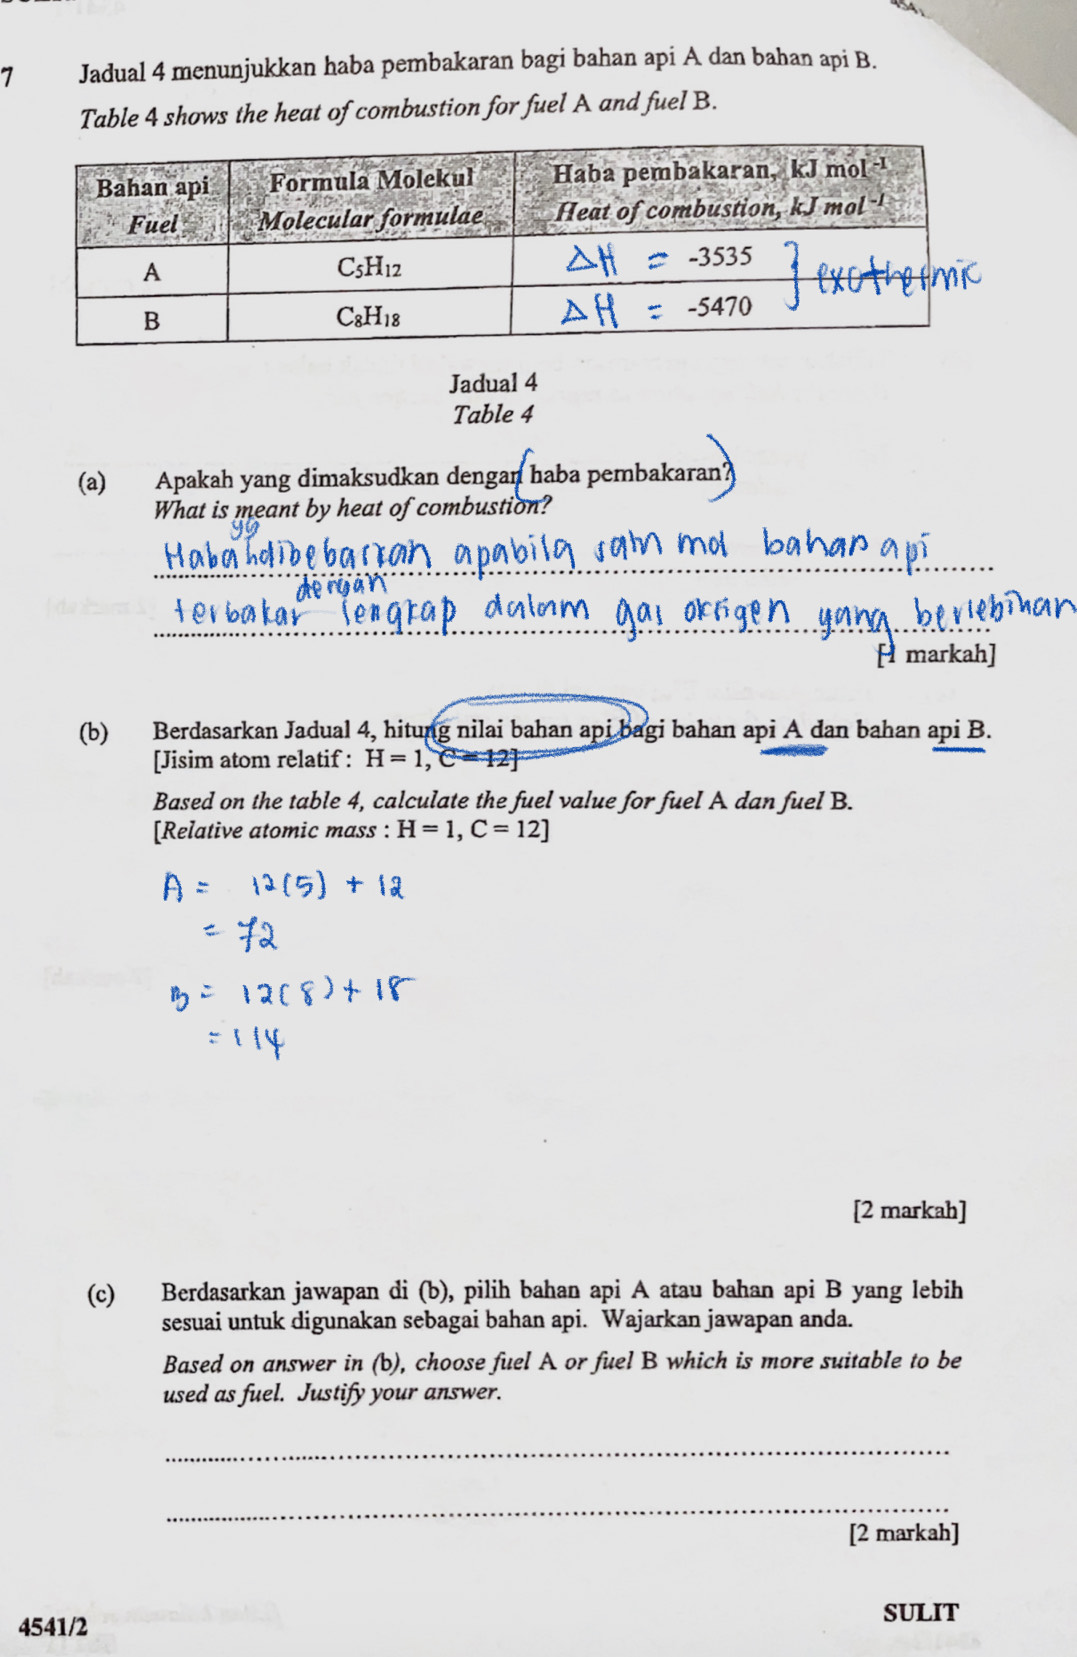 7 Jadual 4 menunjukkan haba pembakaran bagi bahan api A dan bahan api B.
Table 4 shows the heat of combustion for fuel A and fuel B.
Bahan api Formula Molekul Haba pembakaran, kJ mol⁻¹
Fuel Molecular formulae Heat of combustion, kJ mol⁻¹
A C₅H₁₂ ΔH = -3535 } exothermic
B C₈H₁₈ ΔH = -5470
Jadual 4
Table 4
(a) Apakah yang dimaksudkan dengan (haba pembakaran?)
What is meant by heat of combustion?
yg
Haba dibebaskan apabila satu mol bahan api
dengan
terbakar lengkap dalam gas oksigen yang berlebihan
[1 markah]
(b) Berdasarkan Jadual 4, hitung nilai bahan api bagi bahan api A dan bahan api B.
[Jisim atom relatif : H = 1, C = 12]
Based on the table 4, calculate the fuel value for fuel A dan fuel B.
[Relative atomic mass : H = 1, C = 12]
A = 12(5) + 12
= 72
B = 12(8) + 18
= 114
[2 markah]
(c) Berdasarkan jawapan di (b), pilih bahan api A atau bahan api B yang lebih
sesuai untuk digunakan sebagai bahan api. Wajarkan jawapan anda.
Based on answer in (b), choose fuel A or fuel B which is more suitable to be
used as fuel. Justify your answer.
[2 markah]
4541/2 SULIT